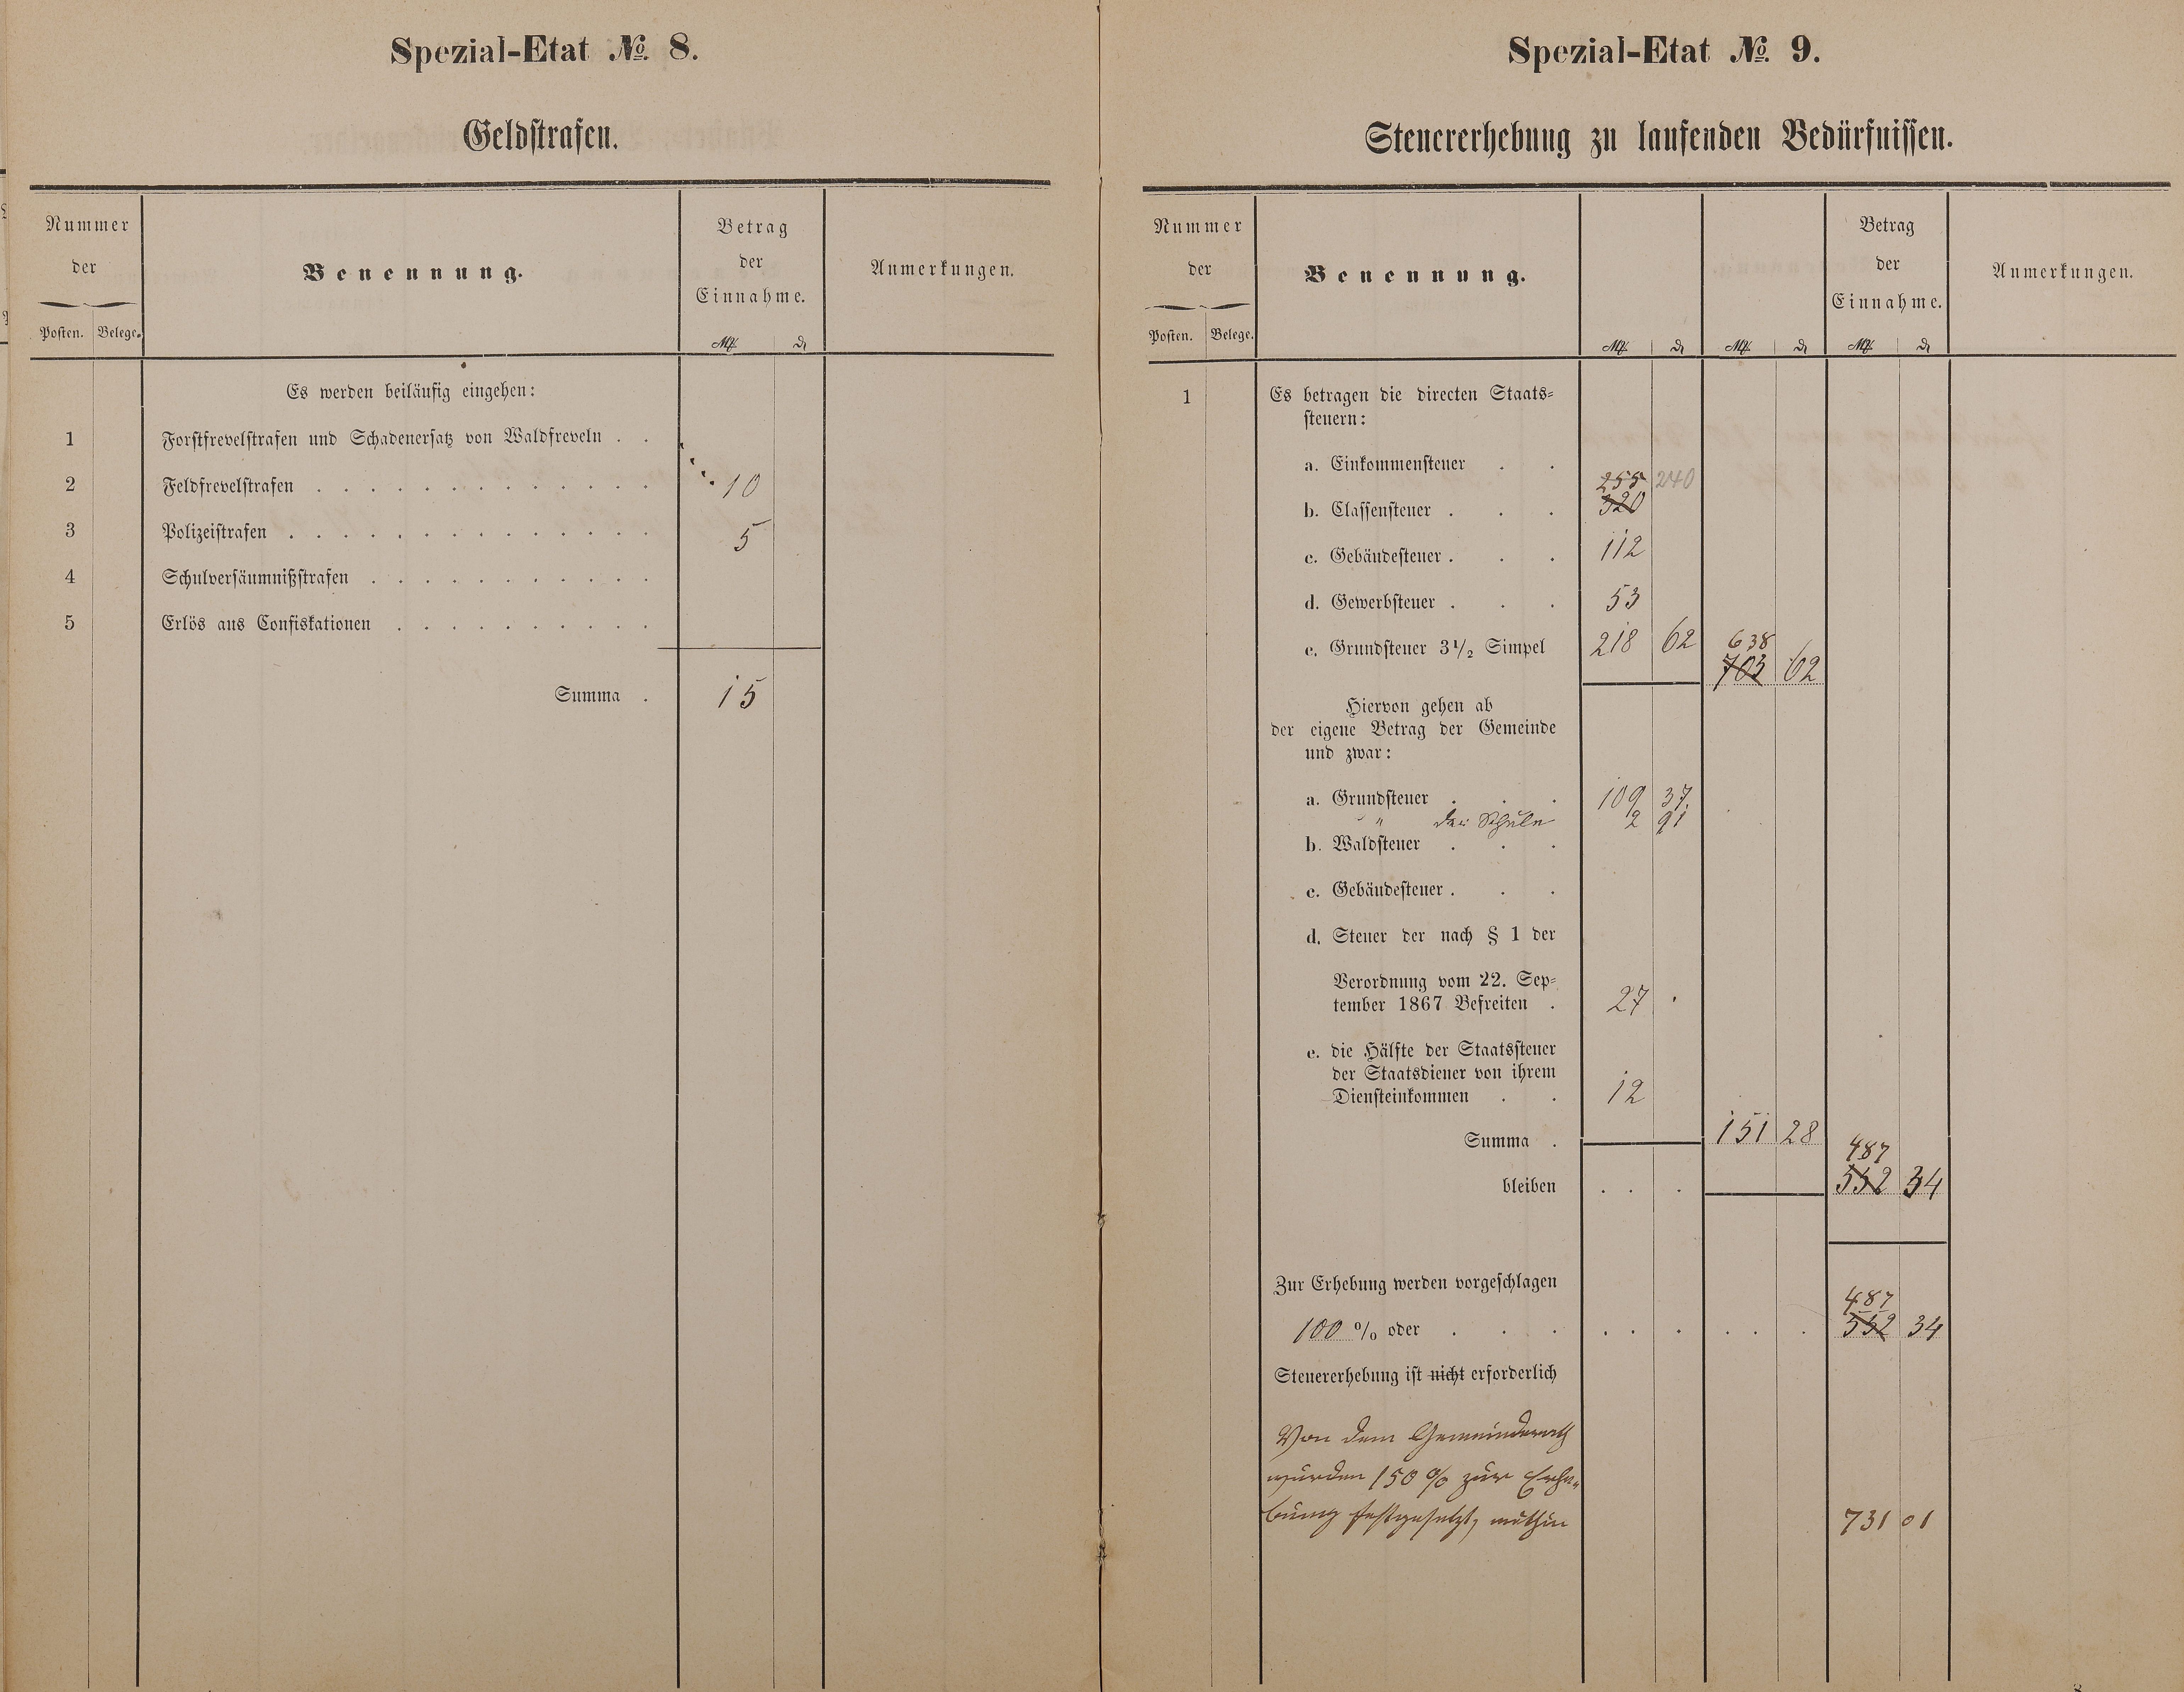 Spezial-Etat № 8.
Geldstrafen.
Nummer
der
Posten. Belege.
Benennung.
Betrag
der
Einnahme.
ℳ ₰
Anmerkungen.
Es werden beiläufig eingehen:
1 Forstfrevelstrafen und Schadenersatz von Waldfreveln . .
2 Feldfrevelstrafen . . . . . . . . . . . . . 10
3 Polizeistrafen . . . . . . . . . . . . . . 5
4 Schulversäumnißstrafen . . . . . . . . . . .
5 Erlös aus Confiskationen . . . . . . . . . .
Summa . 15
Spezial-Etat № 9.
Steuererhebung zu laufenden Bedürfnissen.
Nummer
der
Posten. Belege.
Benennung.
ℳ ₰ ℳ ₰
Betrag
der
Einnahme.
ℳ ₰
Anmerkungen.
1 Es betragen die directen Staats-
steuern:
a. Einkommensteuer . .
255 240
b. Classensteuer . . . 320
c. Gebäudesteuer . . . 112
d. Gewerbsteuer . . . 53
638
e. Grundsteuer 3½ Simpel 218 62 703 62
Hiervon gehen ab
der eigene Betrag der Gemeinde
und zwar:
a. Grundsteuer . . . 109 37
" der Schule 2 91
b. Waldsteuer . . .
c. Gebäudesteuer . . .
d. Steuer der nach § 1 der
Verordnung vom 22. Sep-
tember 1867 Befreiten . 27 .
e. die Hälfte der Staatssteuer
der Staatsdiener von ihrem
Diensteinkommen . . 12
Summa . 151 28
487
bleiben . . . 552 34
Zur Erhebung werden vorgeschlagen
487
100 % oder . . . . . . . . . 552 34
Steuererhebung ist nicht erforderlich
Von dem Gemeinderath
wurden 150 % zur Erhe-
bung festgesetzt, mithin 731 01